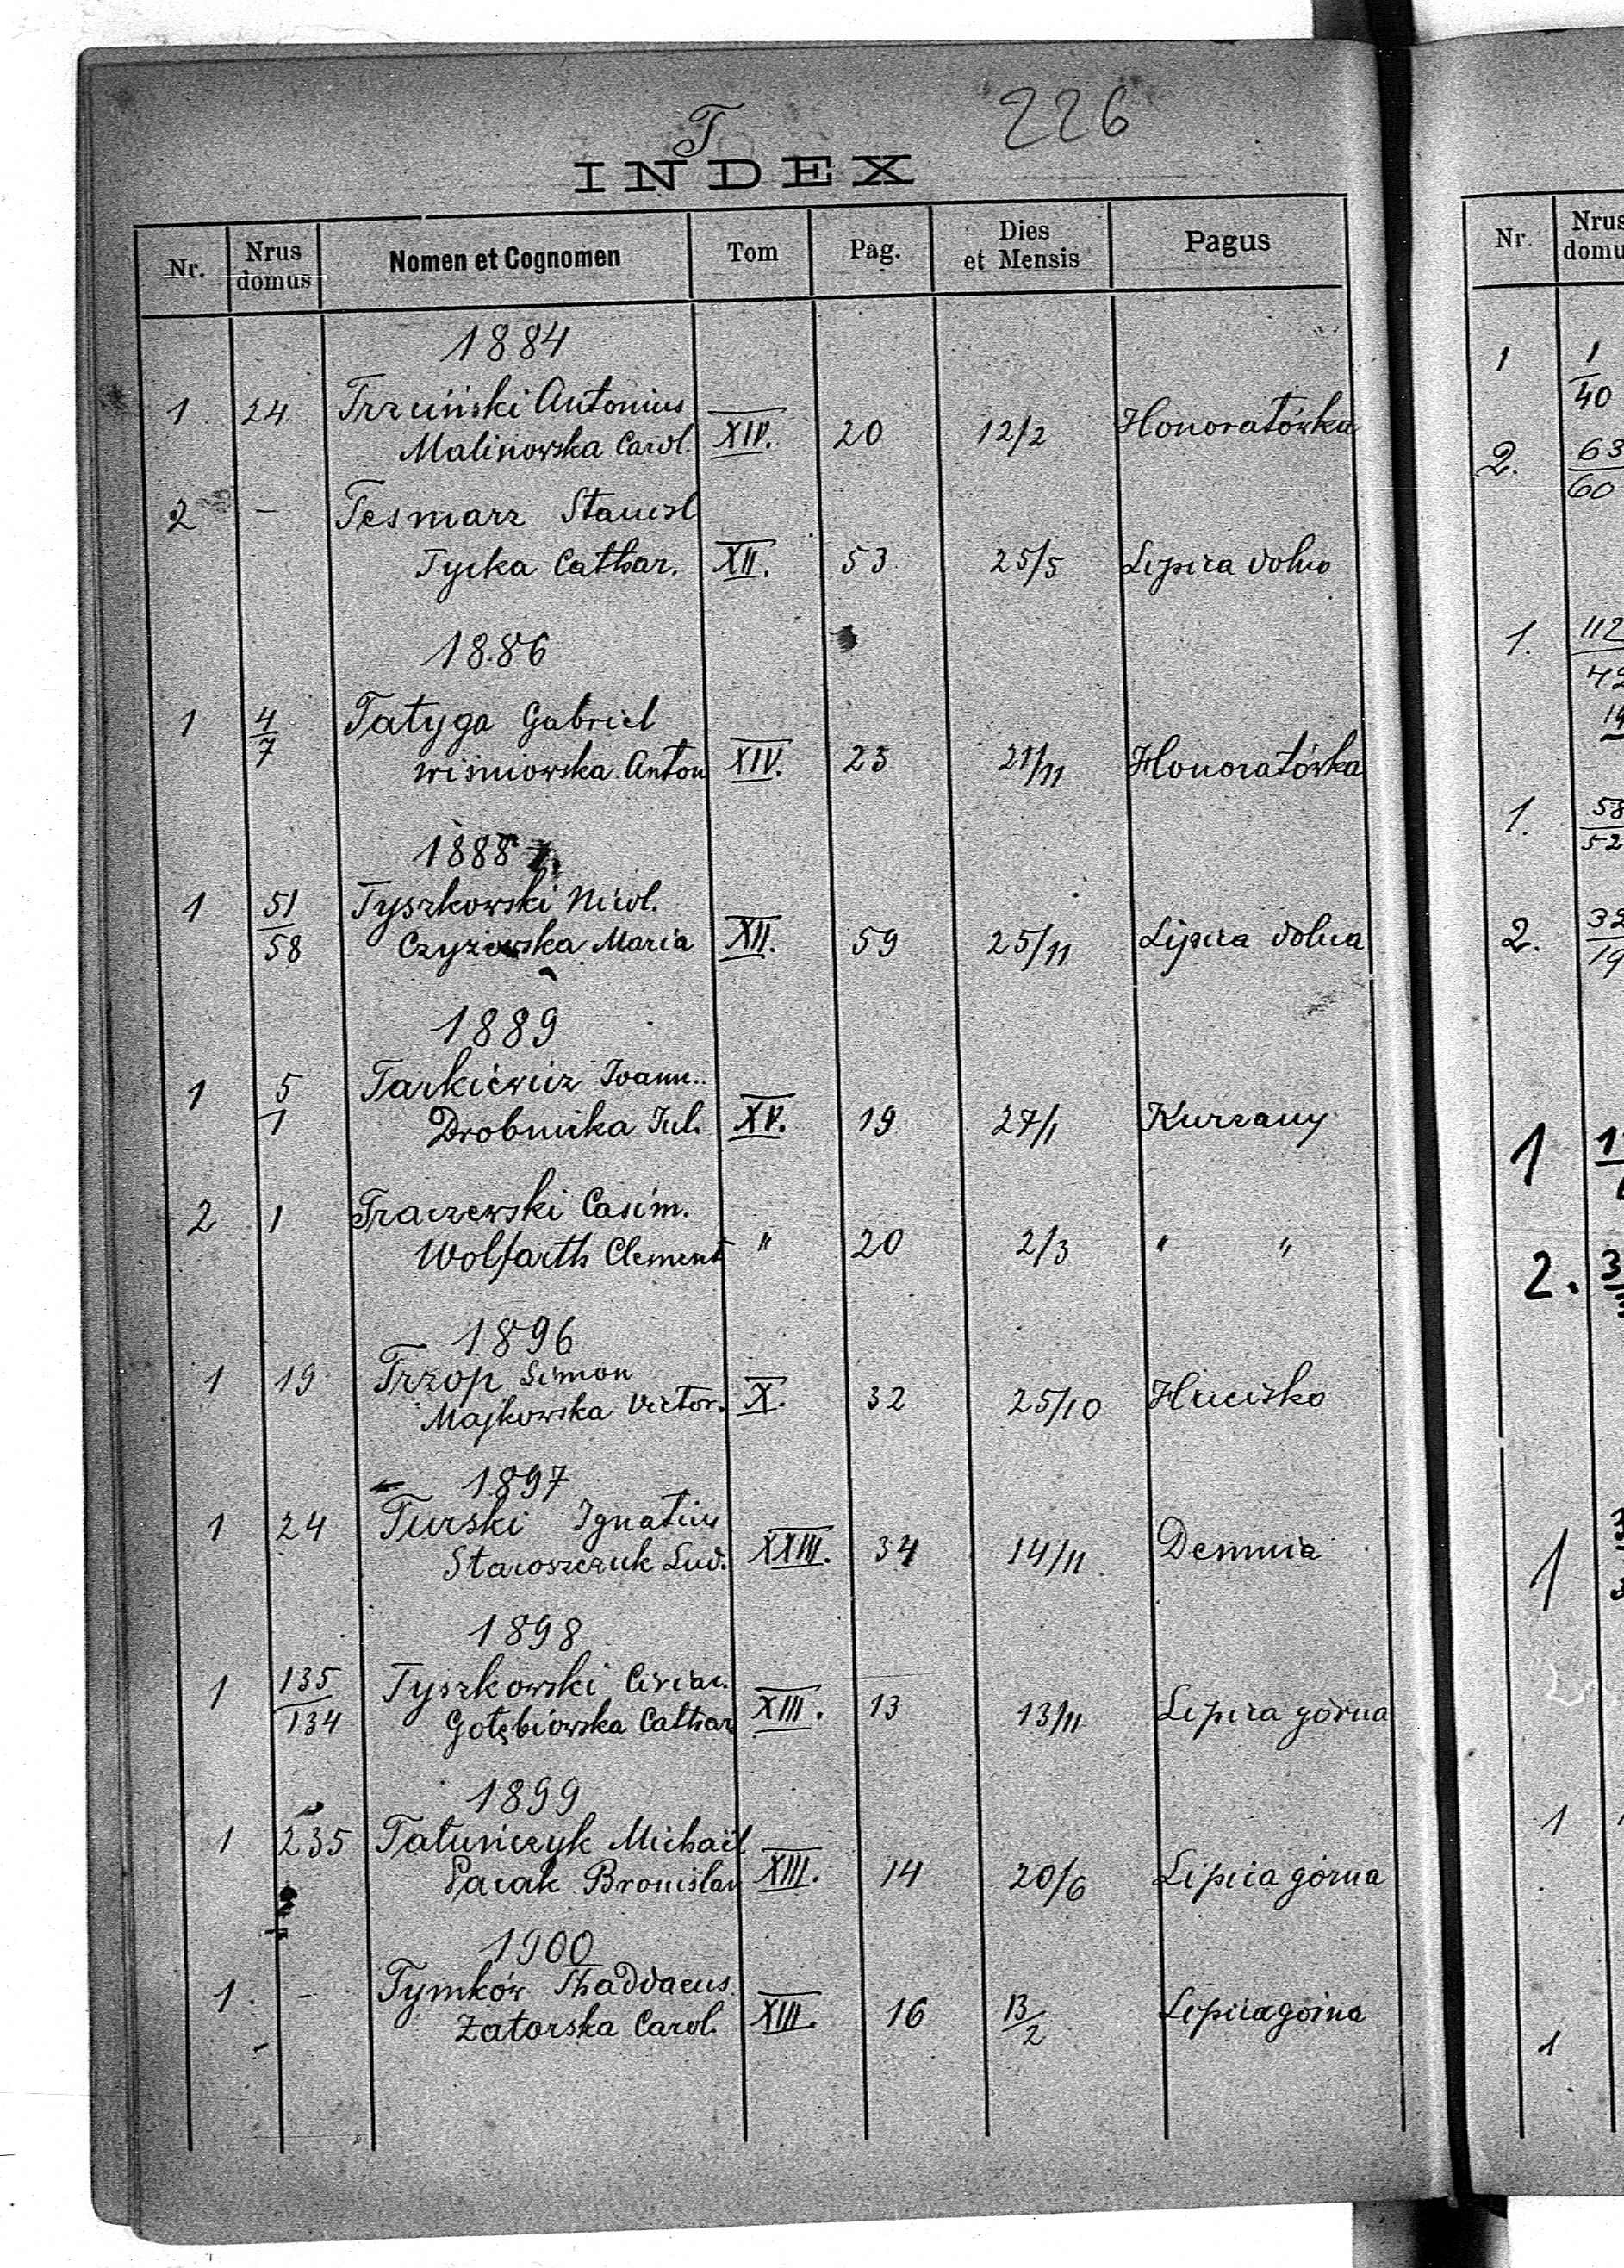 T 226
INDEX
Nr. Nrus domus Nomen et Cognomen Tom Pag. Dies et Mensis Pagus
1884
1 24 Trzciński Antonius
Malinowska Carol. XIV. 20 12/2 Honoratówka
2 - Tesmarz Stanisl
Tycka Cathar. XII. 53 25/5 Lipica dolno
1886
1 4/7 Tatyga Gabriel
Wiśniowska Anton XIV. 23 21/11 Honoratówka
1888
1 51/58 Tyszkowski Nicol.
Czyżewska Maria XII. 59 25/11 Lipica dolna
1889
1 5/1 Tarkiewicz Joann..
Drobnicka Jul. XV. 19 27/1 Kurzany
2 1 Traczewski Casim.
Wolfarth Clement " 20 2/3 " "
1896
1 19 Trzop Simon
Majkowska Victor. X. 32 25/10 Hucisko
1897
1 24 Turski Ignatius
Staroszczuk Lud. XXIII. 34 14/11 Demnia
1898
1 135/134 Tyszkowski Ciriac.
Gołębiowska Cathar XIII. 13 13/11 Lipica górna
1899
1 235 Tatuńczyk Michaël
Pacak Bronislav XIII. 14 20/6 Lipica górna
1900
1. - Tymków Thaddaeus.
Zatorska Carol. XIII. 16 13/2 Lipica górna
Nr. Nrus domu
1 1/40
2. 63/60
1. 112/42
1. 58/52
2. 32/19
1
2.
1
1
1